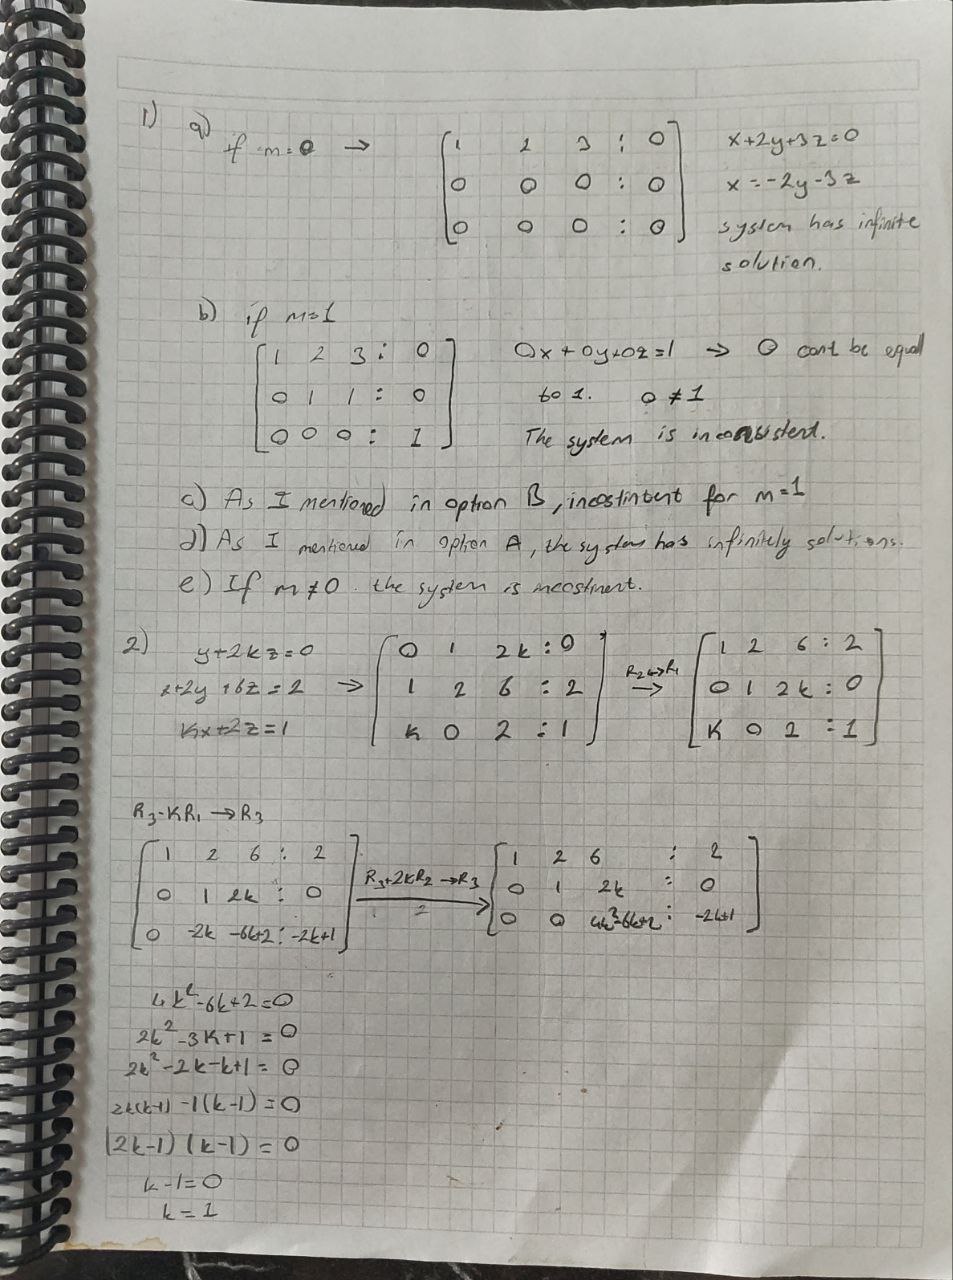 1) a) if m=0 → [1 2 3 : 0 x+2y+3z=0
0 0 0 : 0 x=-2y-3z
0 0 0 : 0] system has infinite
solution.
b) if m=1
[1 2 3 : 0 0x+0y+0z=1 → 0 cant be equal
0 1 1 : 0 to 1. 0≠1
0 0 0 : 1] The system is inconsistent.
c) As I mentioned in option B, incostintent for m=1
d) As I mentioned in option A, the system has infinitely solutions.
e) If m≠0. the system is incostinent.
2) y+2kz=0 [0 1 2k : 0 [1 2 6 : 2
x+2y+6z=2 → 1 2 6 : 2 R2↔R1 → 0 1 2k : 0
Kx+2z=1 K 0 2 : 1] K 0 2 : 1]
R3-KR1 →R3
[1 2 6 : 2 [1 2 6 : 2
0 1 2k : 0 R3+2kR2 →R3 0 1 2k : 0
0 -2k -6k+2 : -2k+1] 0 0 4k²-6k+2 : -2k+1]
4k²-6k+2=0
2k²-3k+1=0
2k²-2k-k+1=0
2k(k-1) -1(k-1)=0
(2k-1) (k-1)=0
k-1=0
k=1